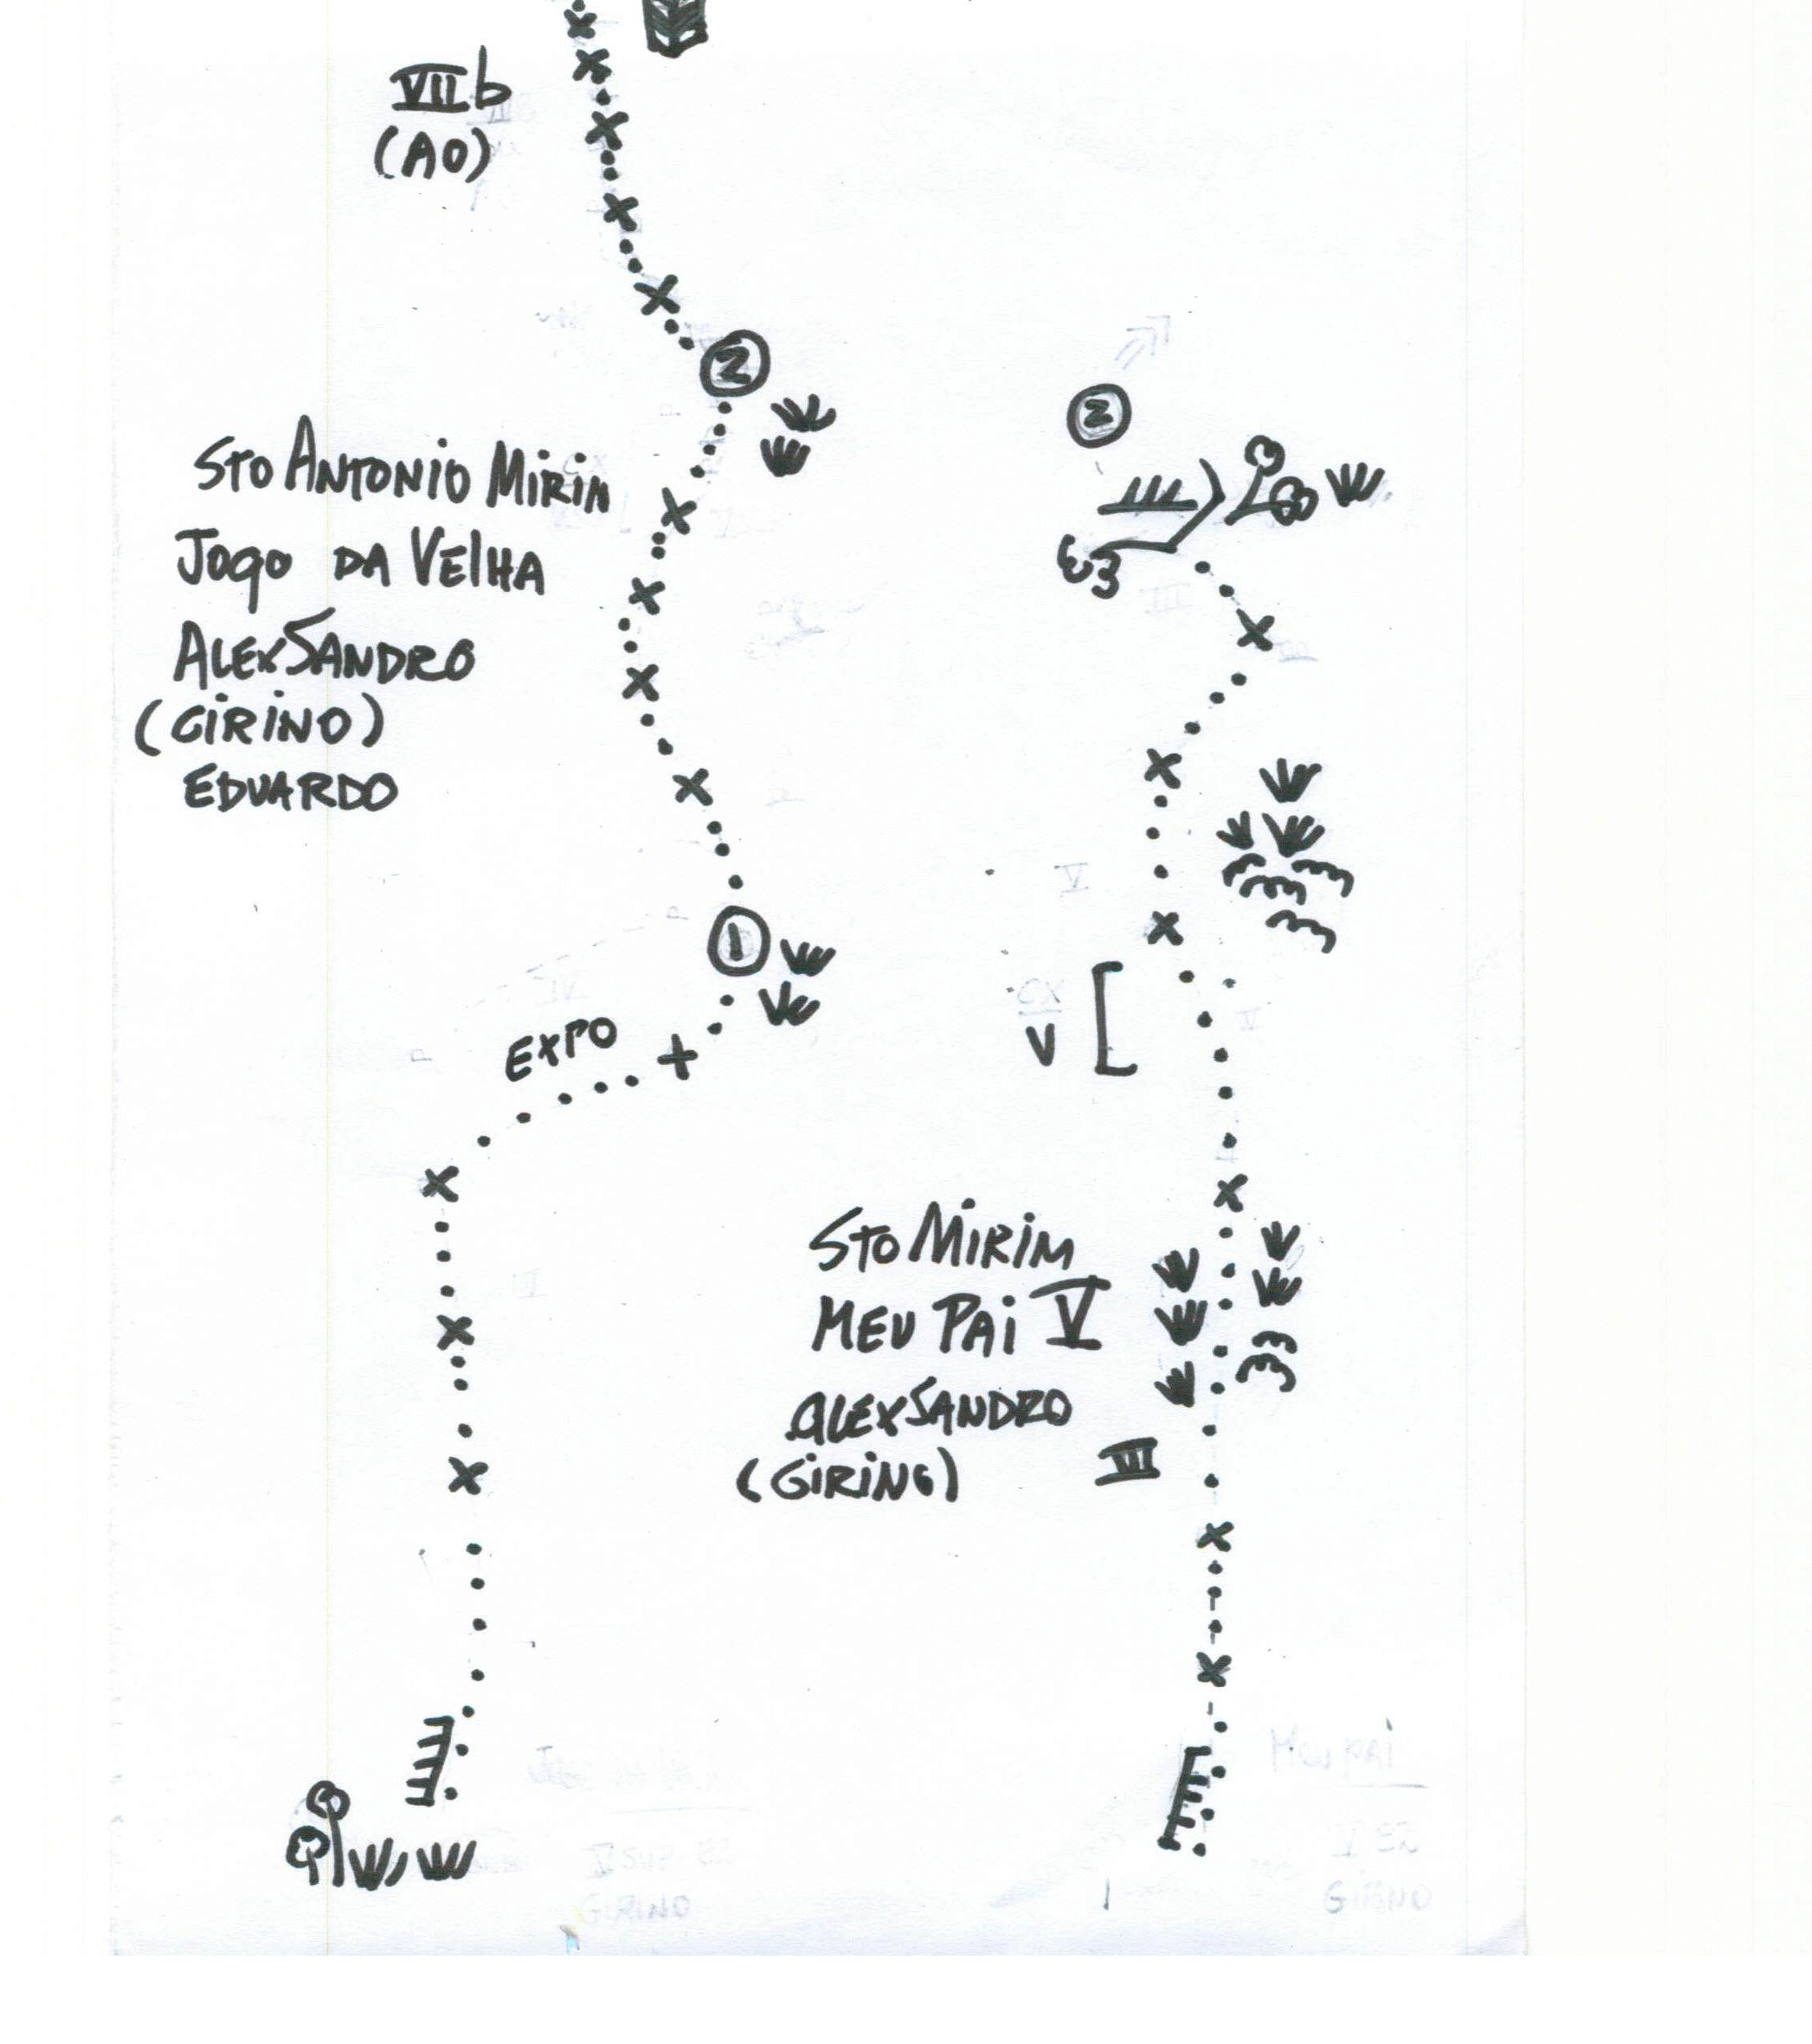 VIIb
(A0)
2
STO ANTONIO MIRIM
JOGO DA VELHA
ALEXSANDRO
(GIRINO)
EDUARDO
1
EXPO
2
CX
V
STO MIRIM
MEU PAI V
ALEXSANDRO
(GIRINO)
III
V
V
MEU PAI
GIRINO
GIRINO